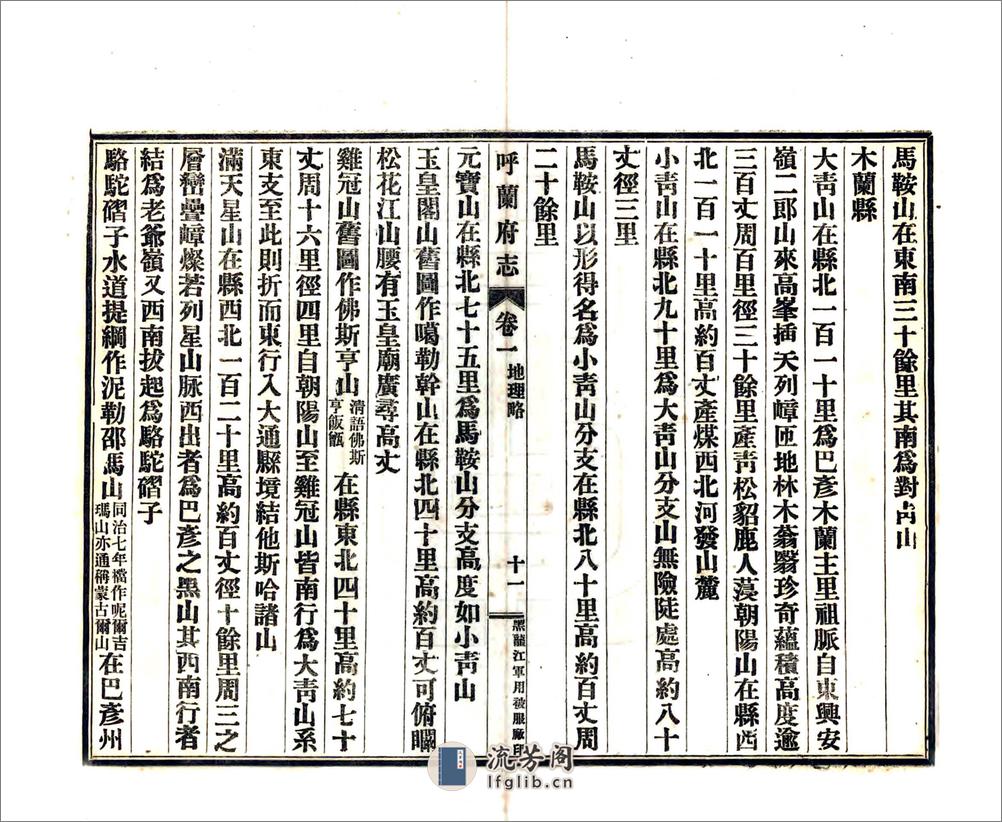 馬鞍山在東南三十餘里其南為對靑山
木蘭縣
大靑山在縣北一百一十里為巴彥木蘭主里祖脈自東興安
嶺二郎山來高峯插天列嶂匝地林木蓊翳珍奇蘊積高度逾
三百丈周百里徑三十餘里產靑松貂鹿人蓡朝陽山在縣西
北一百一十里高約百丈產煤西北河發山麓
小靑山在縣北九十里為大靑山分支山無險陡處高約八十
丈徑三里
馬鞍山以形得名為小靑山分支在縣北八十里高約百丈周
二十餘里
呼蘭府志 卷一 地理略 十一 黑龍江軍用被服廠印
元寶山在縣北七十五里為馬鞍山分支高度如小靑山
玉皇閣山舊圖作噶勒幹山在縣北四十里高約百丈可俯瞯
松花江山腰有玉皇廟廣尋高丈
雞冠山舊圖作佛斯亨山淸語佛斯亨飯甑在縣東北四十里高約七十
丈周十六里徑四里自朝陽山至雞冠山皆南行為大靑山系
東支至此則折而東行入大通縣境結他斯哈諸山
滿天星山在縣西北一百二十里高約百丈徑十餘里周三之
層巒疊嶂燦若列星山脉西出者為巴彥之黑山其西南行者
結為老爺嶺又西南拔起為駱駝磖子
駱駝磖子水道提綱作泥勒邵馮山同治七年檔作呢爾吉瑪山亦通稱蒙古爾山在巴彥州
流芳阁
lfglib.cn